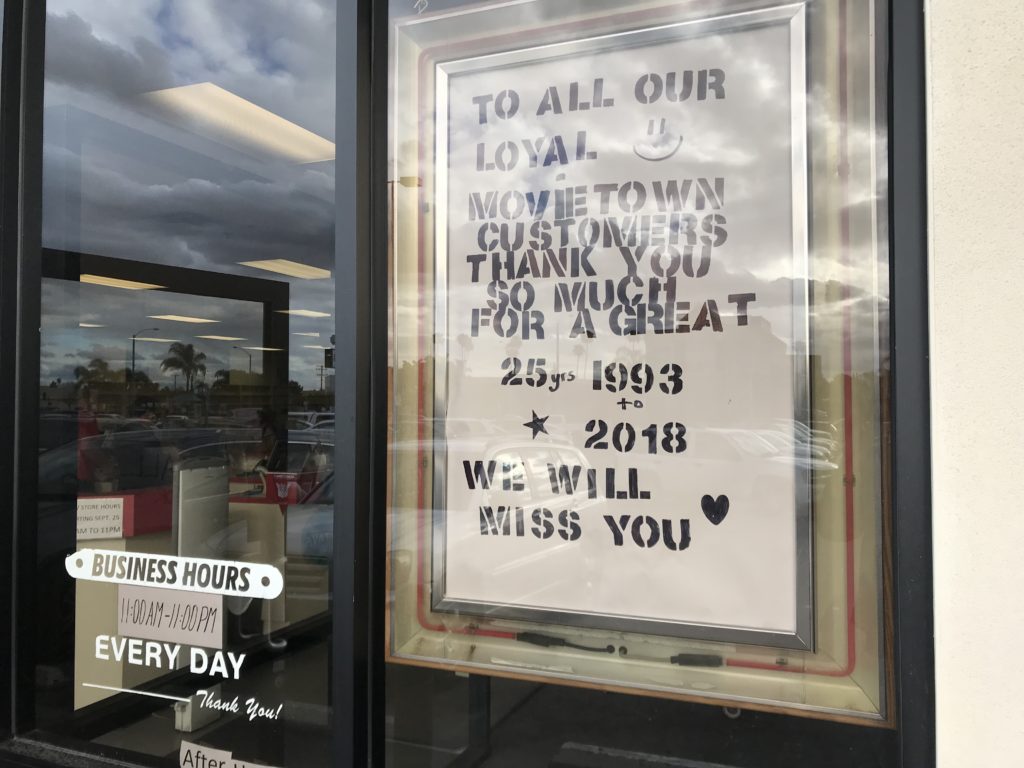 TO ALL OUR
LOYAL
MOVIETOWN
CUSTOMERS
THANK YOU
SO MUCH
FOR A GREAT
25yrs 1993
to
2018
WE WILL
MISS YOU
STORE HOURS
SEPT. 25
AM TO 11PM
BUSINESS HOURS
11:00AM-11:00PM
EVERY DAY
Thank You!
After